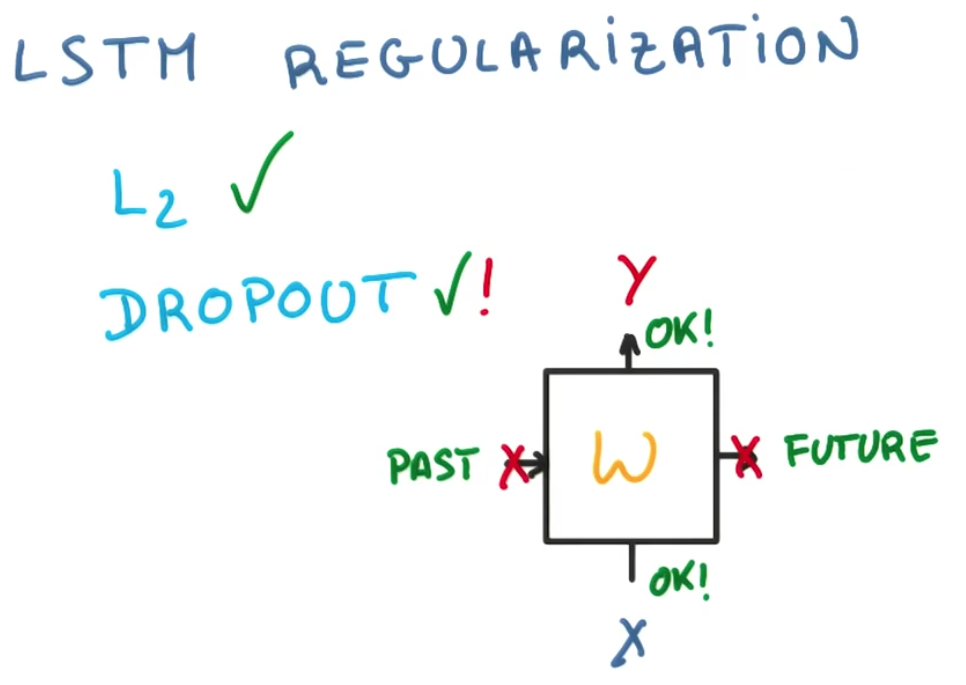 LSTM REGULARIZATION
L2
DROPOUT !
Y
OK!
PAST W FUTURE
OK!
X